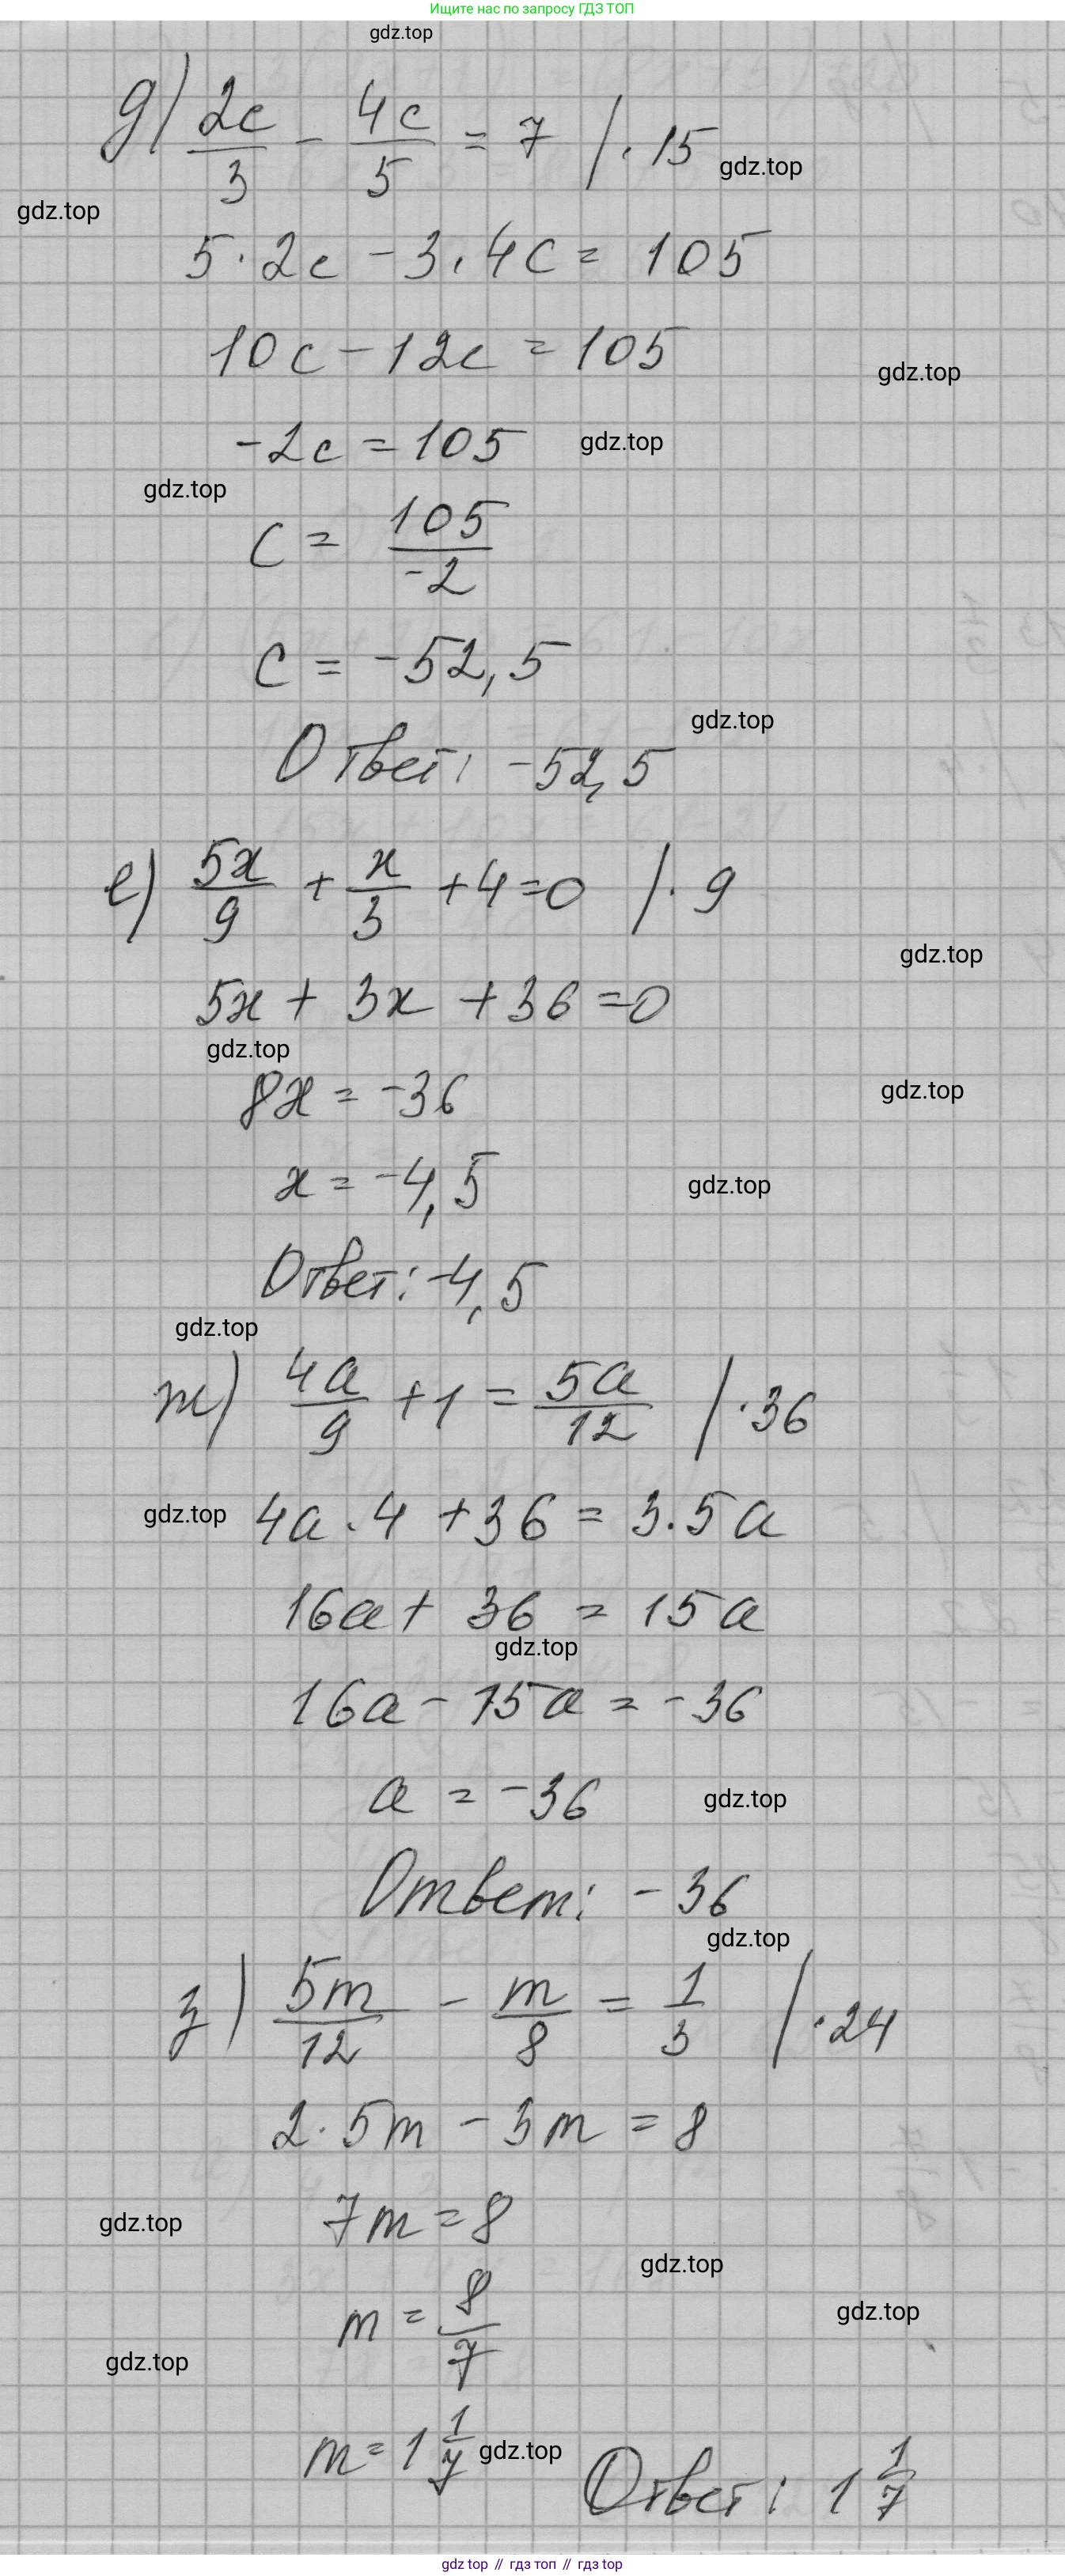 Ищите нас по запросу ГДЗ ТОП
gdz.top
д) 2c/3 - 4c/5 = 7 /·15
gdz.top
gdz.top
5·2c - 3·4c = 105
10c - 12c = 105
gdz.top
-2c = 105
gdz.top
gdz.top
c = 105/-2
c = -52,5
gdz.top
Ответ: -52,5
е) 5x/9 + x/3 + 4 = 0 /·9
gdz.top
5x + 3x + 36 = 0
gdz.top
8x = -36
gdz.top
x = -4,5
gdz.top
Ответ: -4,5
gdz.top
ж) 4a/9 + 1 = 5a/12 /·36
gdz.top
4a·4 + 36 = 3·5a
16a + 36 = 15a
gdz.top
16a - 15a = -36
a = -36
gdz.top
Ответ: -36
gdz.top
з) 5m/12 - m/8 = 1/3 /·24
2·5m - 3m = 8
7m = 8
gdz.top
gdz.top
m = 8/7
gdz.top
gdz.top
m = 1 1/7
gdz.top
Ответ: 1 1/7
gdz top // гдз топ // gdz top